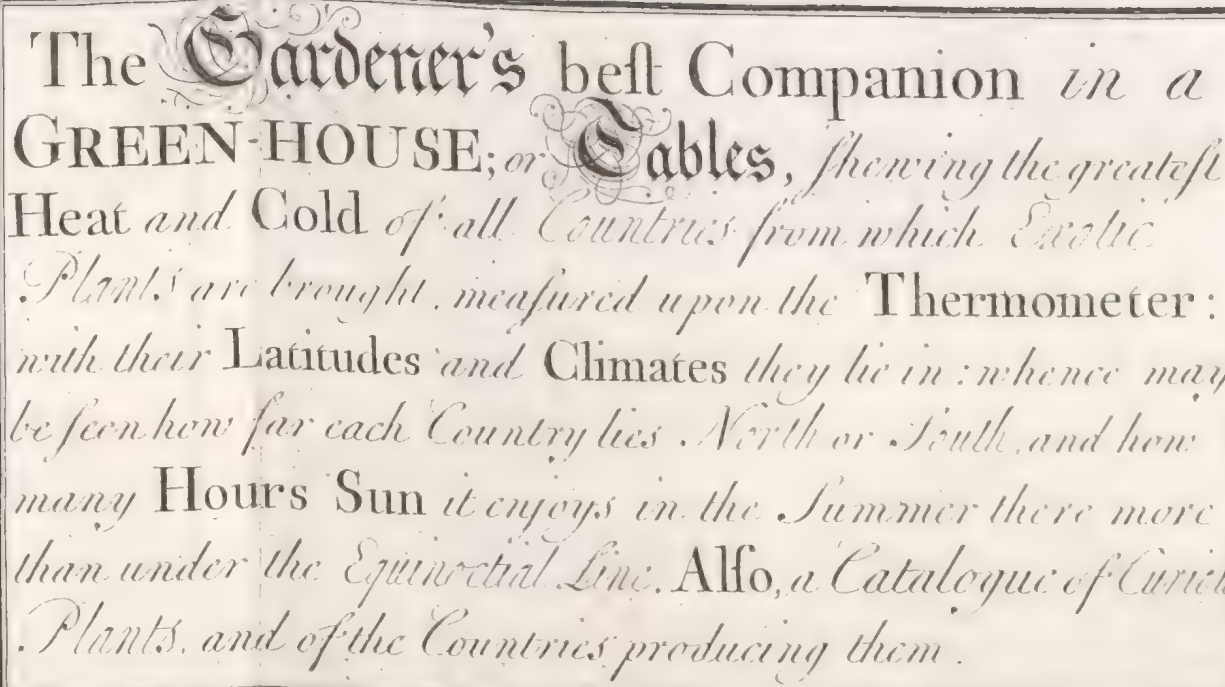 The Gardener's beſt Companion in a
GREEN-HOUSE; or Tables, ſhewing the greateſt
Heat and Cold of all Countries from which Exotic
Plants are brought, meaſured upon the Thermometer:
with their Latitudes and Climates they lie in: whence may
be ſeen how far each Country lies North or South, and how
many Hours Sun it enjoys in the Summer there more
than under the Equinoctial Line. Alſo, a Catalogue of
Plants, and of the Countries producing them.